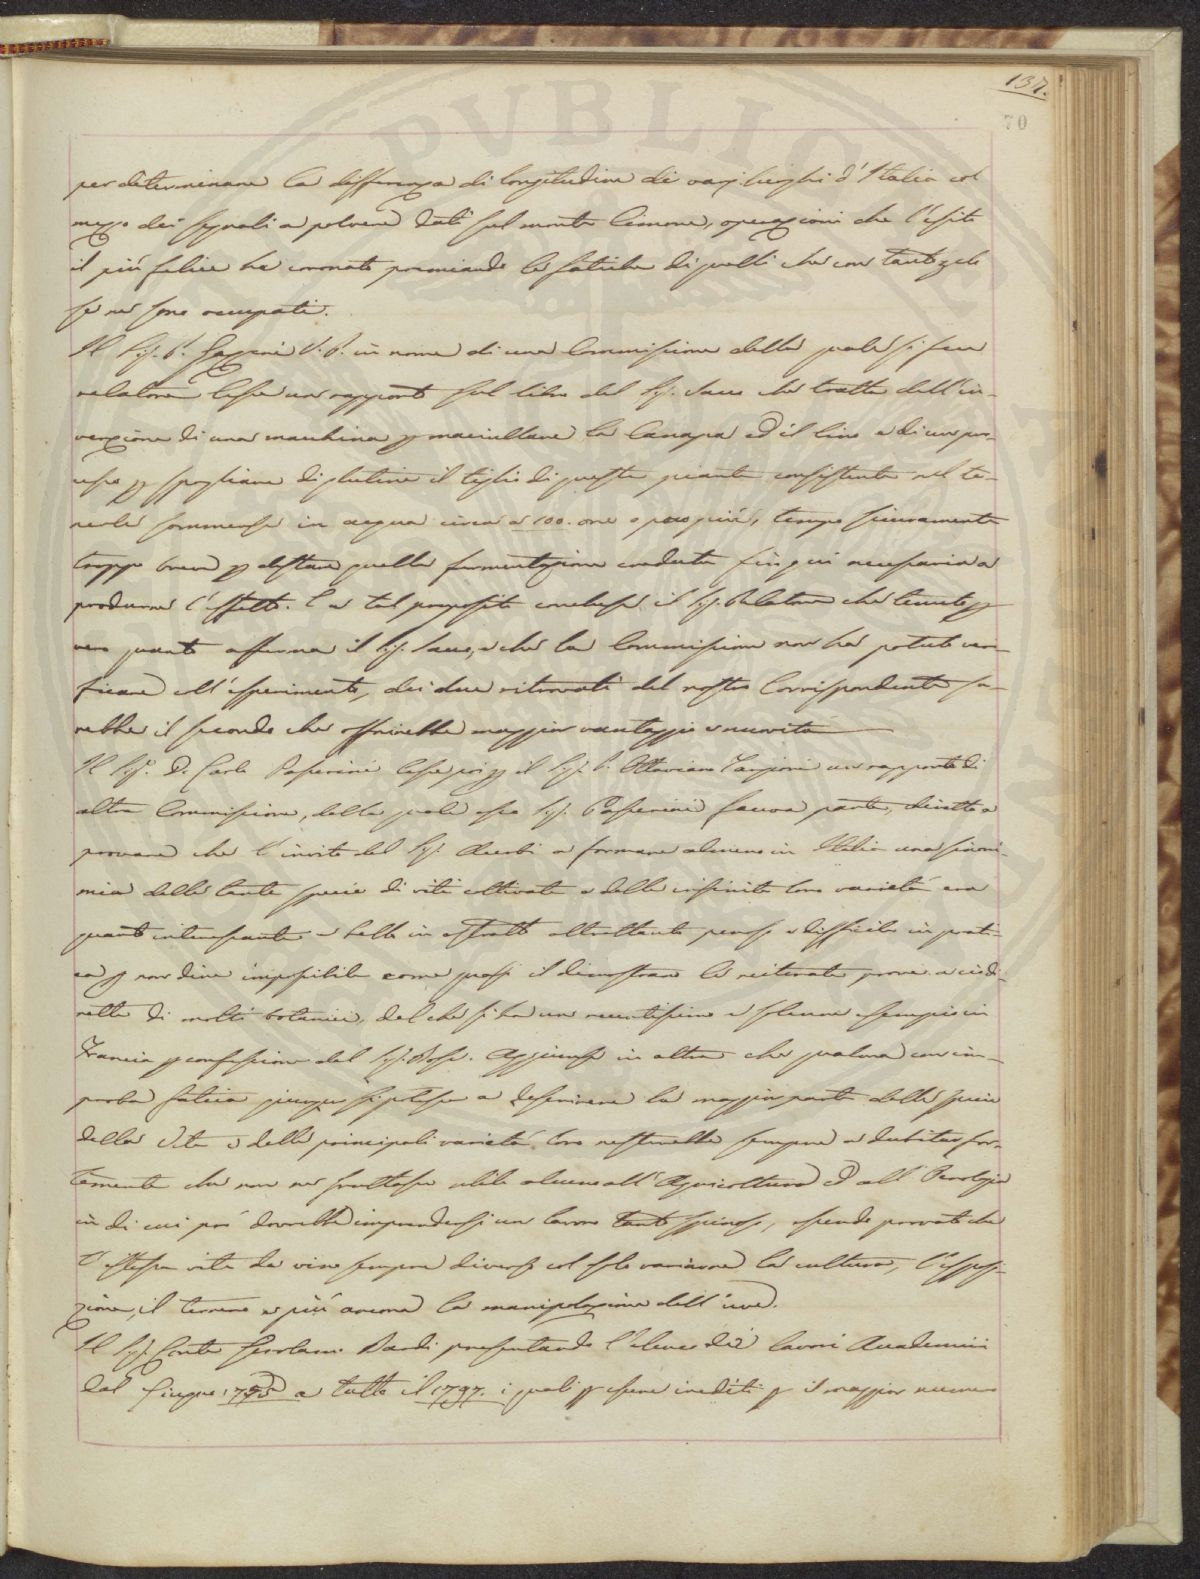 137.
70
per determinare la differenza di longitudine di varj luoghi d'Italia col
mezzo dei segnali a polvere dati sul monte Cimone, operazioni che l'esito
il più felice ha coronato premiando le fatiche di quelli che con tanto zelo
se ne sono occupati.
Il Sig. P. Gazzeri S. P. in nome di una Commissione della quale si fece
relatore lesse un rapporto sul libro del Sig. Sacco che tratta dell'in-
venzione di una macchina p maciullare la Canapa ed il lino e di un pro-
cesso p spogliare di glutine il tiglio di queste piante consistente nel te-
nerle sommerse in acqua circa a 100. ore o poco più, tempo sicuramente
troppo breve p destare quella fermentazione creduta fin qui necessaria a
produrne l'effetto. E a tal proposito concluse il Sig. Relatore che tenuto p
vero quanto asserma il Sig. Sacco, e che la Commissione non ha potuto veri-
ficare coll'esperimento, dei due ritrovati del nostro Corrispondente sa-
rebbe il secondo che offrirebbe maggior vantaggio e novità
Il Sig. D. Carlo Passerini lesse poi p il Sig. P. Ottaviano Targioni un rapporto di
altra Commissione, della quale esso Sig. Passerini faceva parte, diretto a
provare che l'invito del Sig. Acerbi a formare almeno in Italia una sinoni-
mia delle tante specie di viti coltivate e delle infinite loro varietà era
quanto interessante e bello in astratto altrettanto penoso e difficile in prati-
ca p non dire impossibile come quasi il dimostrano le reiterate prove a ciò di-
rette di molti botanici, del che si ha un recentissimo e solenne esempio in
Francia p confessione del Sig. Bosc. Aggiunse in oltre che qualora con im-
proba fatica giunger si potesse a descrivere la maggior parte delle specie
della Vite e delle principali varietà loro resterebbe sempre a dubitar for-
temente che non ne fruttasse utile alcuno all'Agricoltura ed all'Enologia
in di cui prò dovrebbe imprendersi un lavoro tanto spinoso, essendo provato che
l'istessa vite da vino sempre diverso col solo variarne la cultura, l'esposi-
zione, il terreno e più ancora la manipolazione dell'uve.
Il Sig. Conte Girolamo Bardi presentando l'elenco dei lavori Accademici
dal Giugno 1795 a tutto il 1797. i quali p essere inediti p il maggior numero